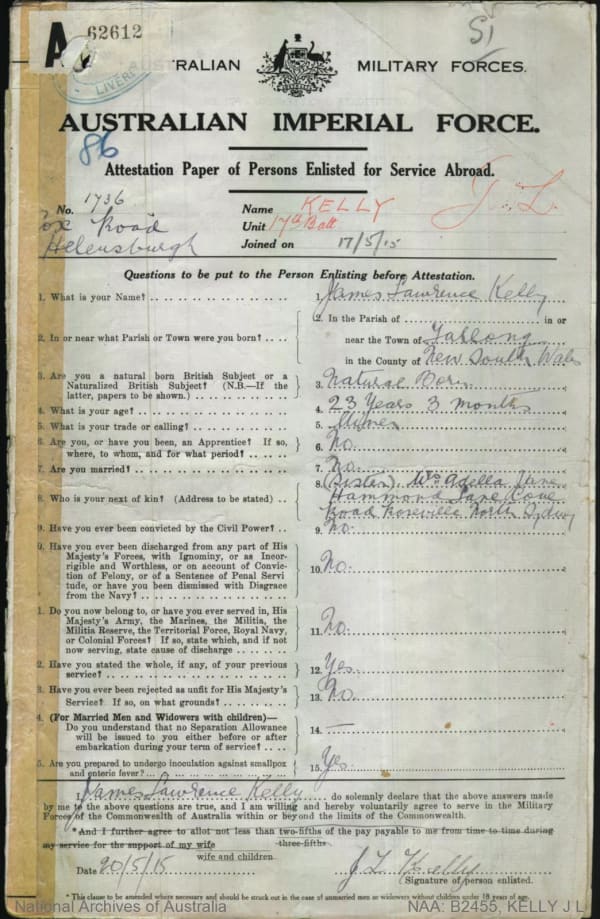 A 62612
S1
LIVER
AUSTRALIAN MILITARY FORCES.
AUSTRALIAN IMPERIAL FORCE.
86
Attestation Paper of Persons Enlisted for Service Abroad.
No. 1736
Road
Helensburgh
Name KELLY J. L.
Unit 17th Batt
Joined on 17/5/15
Questions to be put to the Person Enlisting before Attestation.
1. What is your Name? 1. James Lawrence Kelly
2. In or near what Parish or Town were you born? 2. In the Parish of in or
near the Town of
in the County of New South Wales
3. Are you a natural born British Subject or a
Naturalized British Subject? (N.B.—If the
latter, papers to be shown.) 3. Natural Born
4. What is your age? 4. 23 Years 3 months
5. What is your trade or calling? 5. Miner
6. Are you, or have you been, an Apprentice? If so,
where, to whom, and for what period? 6. No
7. Are you married? 7. No
8. Who is your next of kin? (Address to be stated) 8. (Sister) Mrs Adella Jane
Hammond Lane Cove
Road Roseville North Sydney
9. Have you ever been convicted by the Civil Power? 9. No
9. Have you ever been discharged from any part of His
Majesty's Forces, with Ignominy, or as Incor-
rigible and Worthless, or on account of Convic-
tion of Felony, or of a Sentence of Penal Servi
tude, or have you been dismissed with Disgrace
from the Navy? 10. No
1. Do you now belong to, or have you ever served in, His
Majesty's Army, the Marines, the Militia, the
Militia Reserve, the Territorial Force, Royal Navy,
or Colonial Forces? If so, state which, and if not
now serving, state cause of discharge 11. No
2. Have you stated the whole, if any, of your previous
service? 12. Yes
3. Have you ever been rejected as unfit for His Majesty's
Service? If so, on what grounds? 13. No
4. (For Married Men and Widowers with children)—
Do you understand that no Separation Allowance
will be issued to you either before or after
embarkation during your term of service? 14. —
5. Are you prepared to undergo inoculation against smallpox
and enteric fever? 15. Yes
I, James Lawrence Kelly do solemnly declare that the above answers made
by me to the above questions are true, and I am willing and hereby voluntarily agree to serve in the Military
Forces of the Commonwealth of Australia within or beyond the limits of the Commonwealth.
*And I further agree to allot not less than two-fifths of the pay payable to me from time to time during
three-fifths
my service for the support of my wife
wife and children.
Date 20/5/15 J L Kelly
(Signature of person enlisted.
*This clause to be amended where necessary and should be struck out in the case of unmarried men or widowers without children under 18 years of age.
National Archives of Australia NAA: B2455, KELLY J L